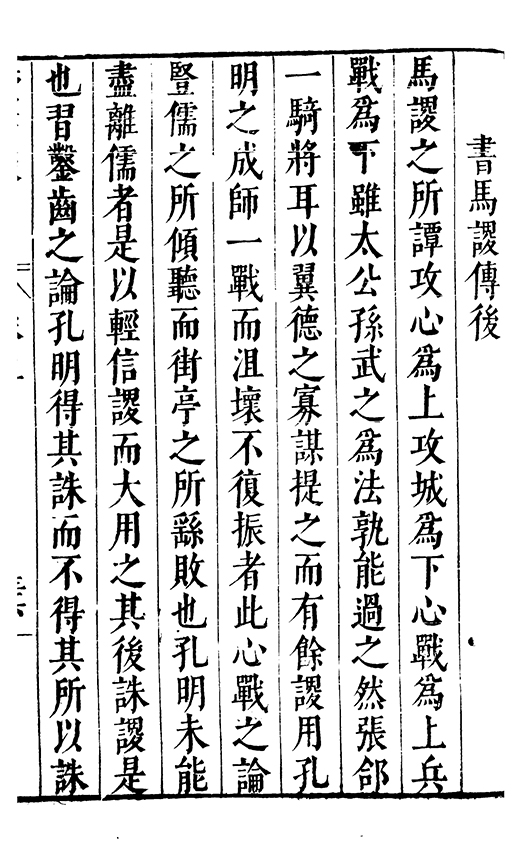 書馬謖傳後
馬謖之所譚攻心爲上攻城爲下心戰爲上兵
戰爲下雖太公孫武之爲法孰能過之然張郃
一騎將耳以翼德之寡謀提之而有餘謖用孔
明之成師一戰而沮壞不復振者此心戰之論
豎儒之所傾聽而街亭之所繇敗也孔明未能
盡離儒者是以輕信謖而大用之其後誅謖是
也習鑿齒之論孔明得其誅而不得其所以誅